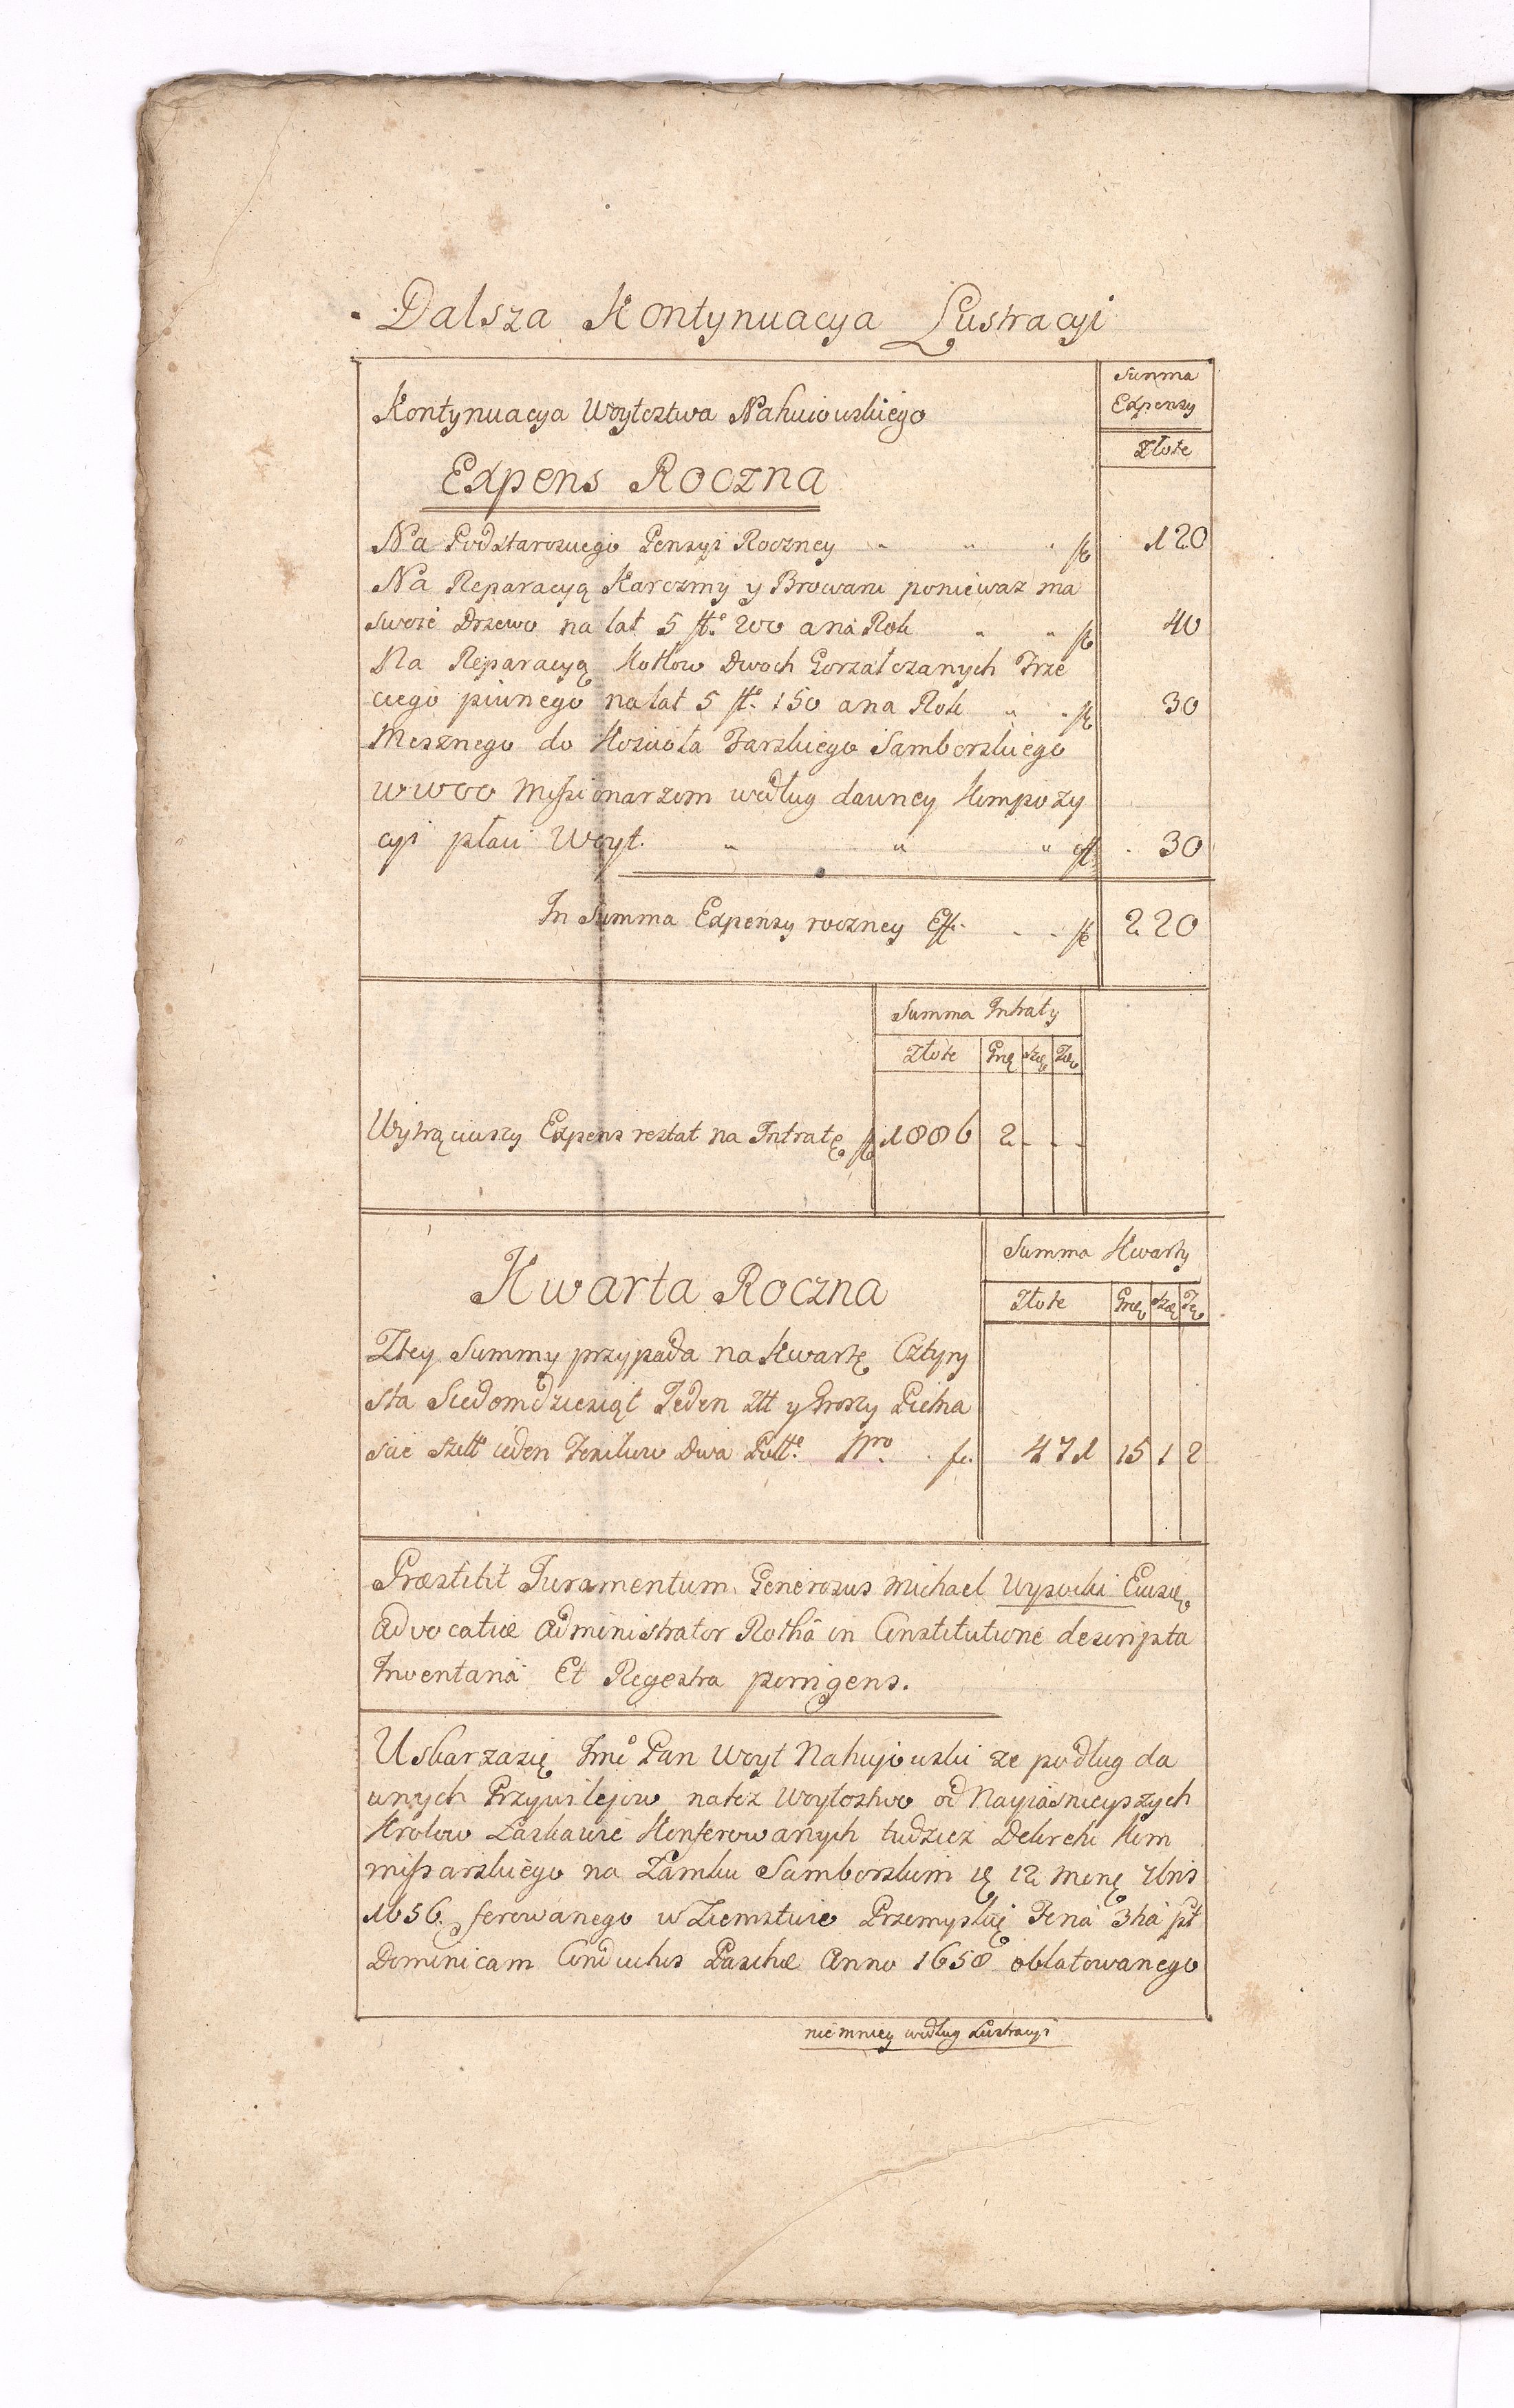 Dalsza Kontynuacya Lustracyi
Summa
Expensy
Kontynuacya Woytostwa Nahuiowskiego
Złote
Expens Roczna
Na Podstarosciego Pensyi Roczney " " " fl 120
Na Reparacyą Karczmy y Browaru poniewaz ma
swoie Drzewo na lat 5 fl. 200 a na Rok " " fl 40
Na Reparacyą Kotłow Dwoch Gorzałczanych Trze
ciego piwnego na lat 5 fl. 150 a na Rok " " fl 30
Mesznego do Koscioła Farskiego Samborskiego
WWOO Missionarzom według dawney Kompozy
cyi płaci Woyt. " " " fl 30
In Summa Expensy roczney Eff. - - fl 220
Summa Intraty
Złote Grz Szel
Wytrąciwszy Expens restat na Intratę fl 1886 2 - - -
Summa Kwarty
Kwarta Roczna
Złote
Ztey Summy przypada na Kwartę Cztyry
sta Siedomdziesiąt Jeden Złł y Groszy Pietna
scie Szell ieden Fenikow Dwa fl. 471 15 1 2
Præstitit Juramentum Generosus Michael Wysocki
Advocatiæ Administrator Rothâ in Constitutione descripta
Inventaria Et Regestra porrigens.
Uskarza się Imć Pan Woyt Nahujowski ze podług da
wnych Przywilejow na tez Woytostwo od Nayiasnieyszych
Krolow Łaskawie Konferowanych tudziez Dekretu Kom
missarskiego na Zamku Samborskim 12 7bris
1656 ferowanego w Ziemstwie
Dominicam Conductus Paschæ Anno 1658 oblatowanego
nie mniey według Lustracyi